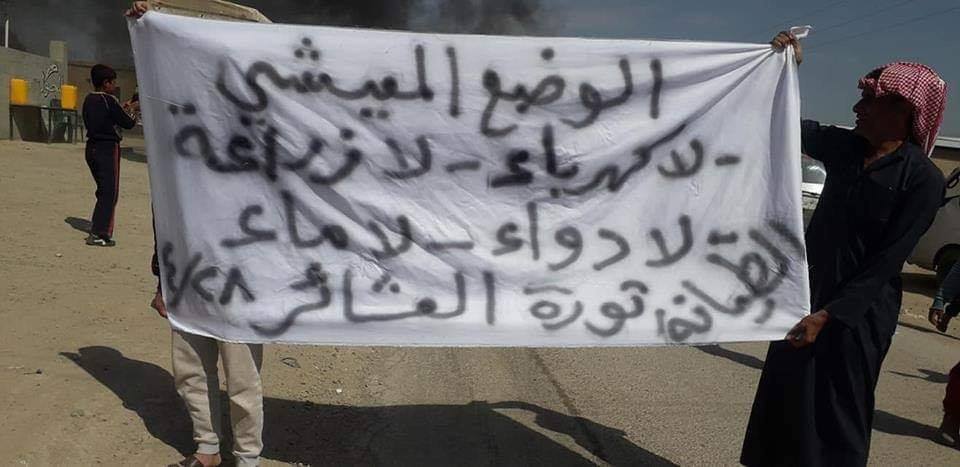 الوضع المعيشي
- لا كهرباء - لا زراعة
لا دواء - لا ماء
الطيانة/ ثورة العشائر ٤/٢٨